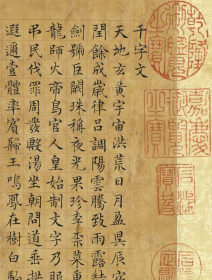 千字文
天地玄黃宇宙洪荒日月盈昃辰宿
閏餘成歲律呂調陽雲騰致雨露結
劍號巨闕珠稱夜光果珍李柰菜重
龍師火帝鳥官人皇始制文字乃服
弔民伐罪周發殷湯坐朝問道垂拱
遐邇壹體率賓歸王鳴鳳在樹白駒